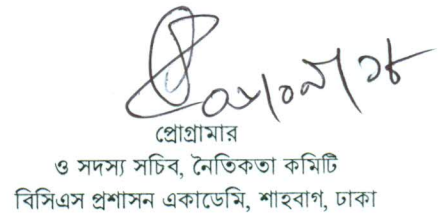 প্রোগ্রামার
ও সদস্য সচিব, নৈতিকতা কমিটি
বিসিএস প্রশাসন একাডেমি, শাহবাগ, ঢাকা